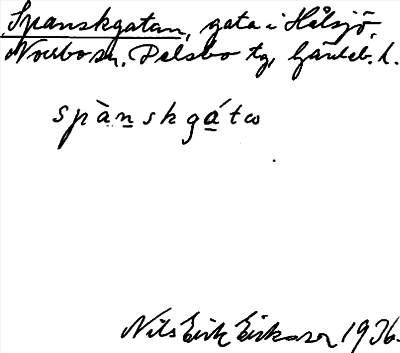 Spanskgatan, gata i Hålsjö,
Norrbo sn, Delsbo tg, Gävleb. l.
spànskgátω
Nils Eirik Eirkson 1936.